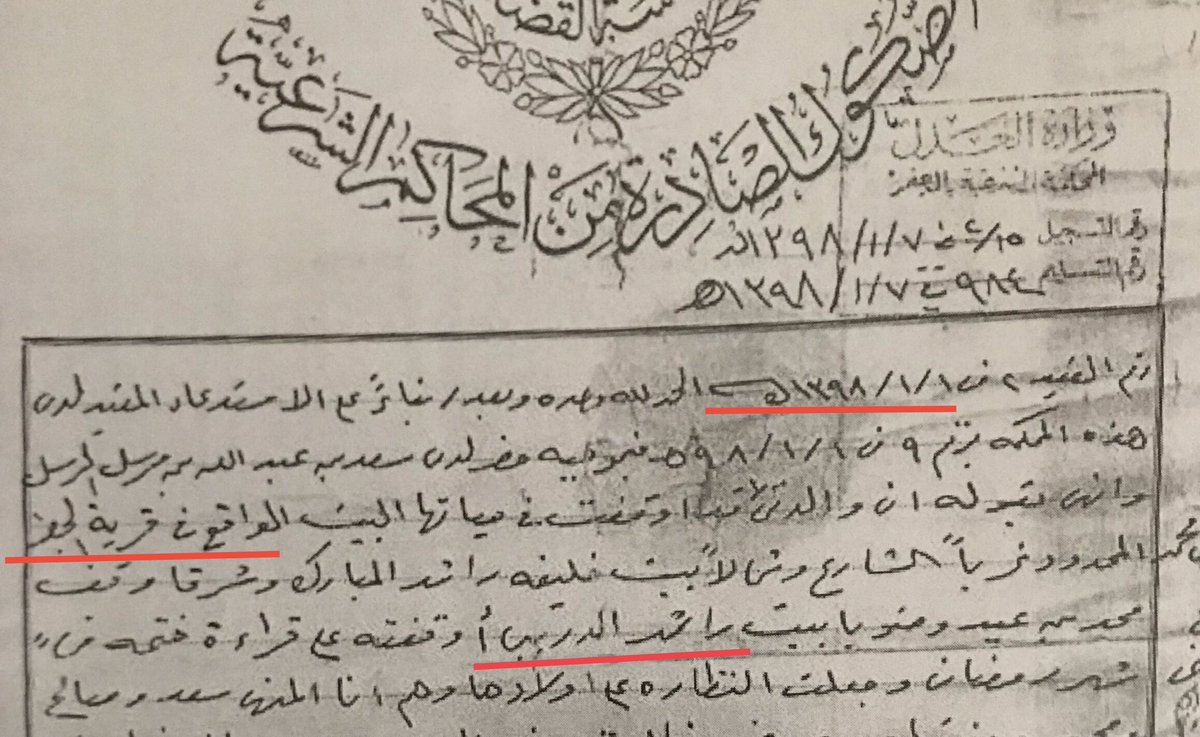 الصكوك الصادرة من المحاكم الشرعية
وزارة العدل
المحكمة الشرعية بالجفر
رقم التسجيل ٤/١٥ في ١٣٩٨/١/٧هـ
رقم التسليم ٩٨٤ في ١٣٩٨/١/٧هـ
رقم القيد ٢ في ١٣٩٨/١/١هـ الحمد لله وحده وبعد بناءً على الاستدعاء المقيد لدى
هذه المحكمة برقم ٩ في ٩٨/١/١هـ فبموجبه حضر لدى سعد بن عبد الله بن مرسل المرسل
وانهى بقوله ان والدتي قد اوقفت في حياتها البيت الواقع في قرية الجفر
المحدود غرباً الشارع وشمالاً بيت خليفه راشد المبارك وشرقا وقف
محمد بن عيد وجنوبا بيت راشد الدريبي أوقفته على قراءة ختمه في
شهر رمضان وجعلت النظاره على اولادها وهم انا المنهي سعد وصالح